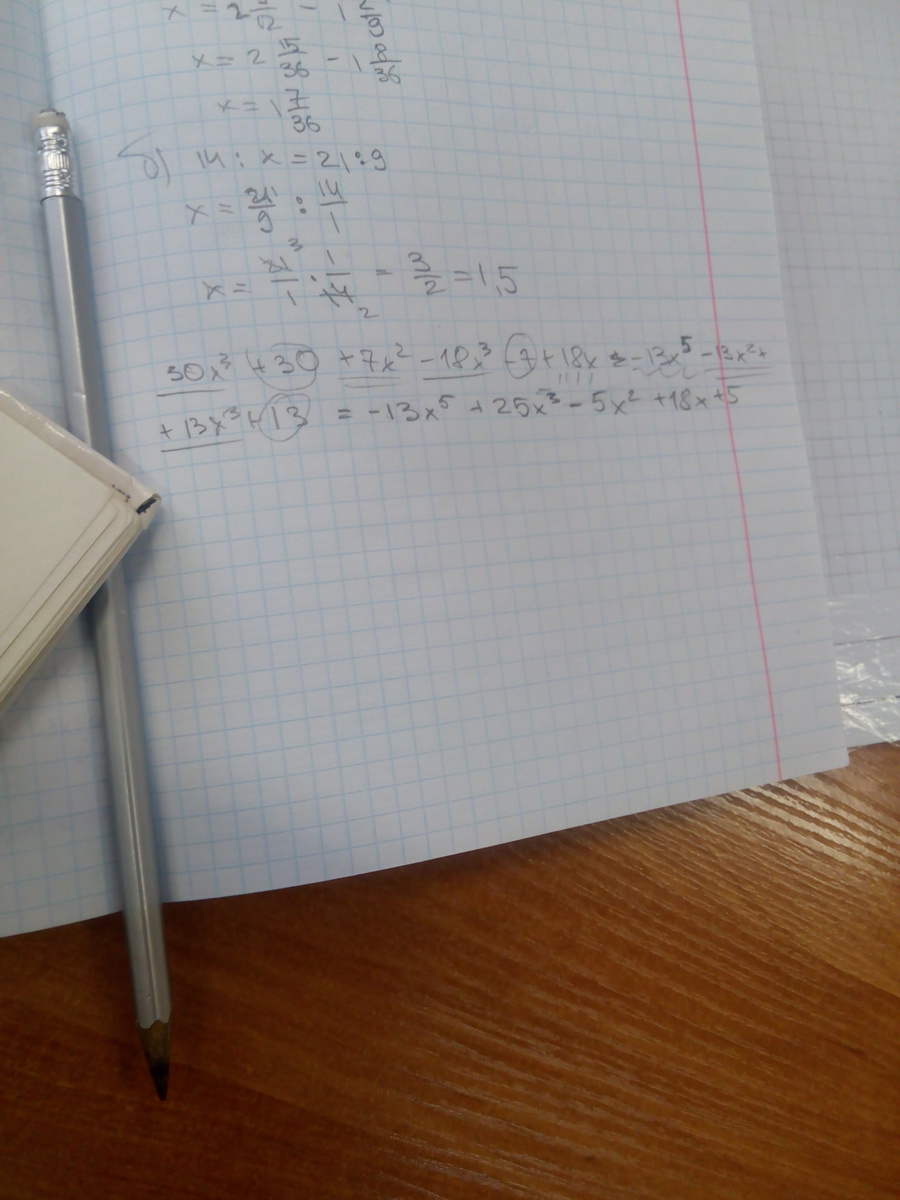 x = 2 7/12 - 1 2/9
x = 2 15/36 - 1 8/36
x = 1 7/36
б) 14 : x = 21 : 9
x = 21/9 : 14/1
x = 21 3/1 · 1/14 2 = 3/2 = 1,5
30x³ + 30 + 7x² - 18x³ - 7 + 18x - 13x⁵ - 13x² +
+ 13x³ + 13 = -13x⁵ + 25x³ - 5x² + 18x + 5